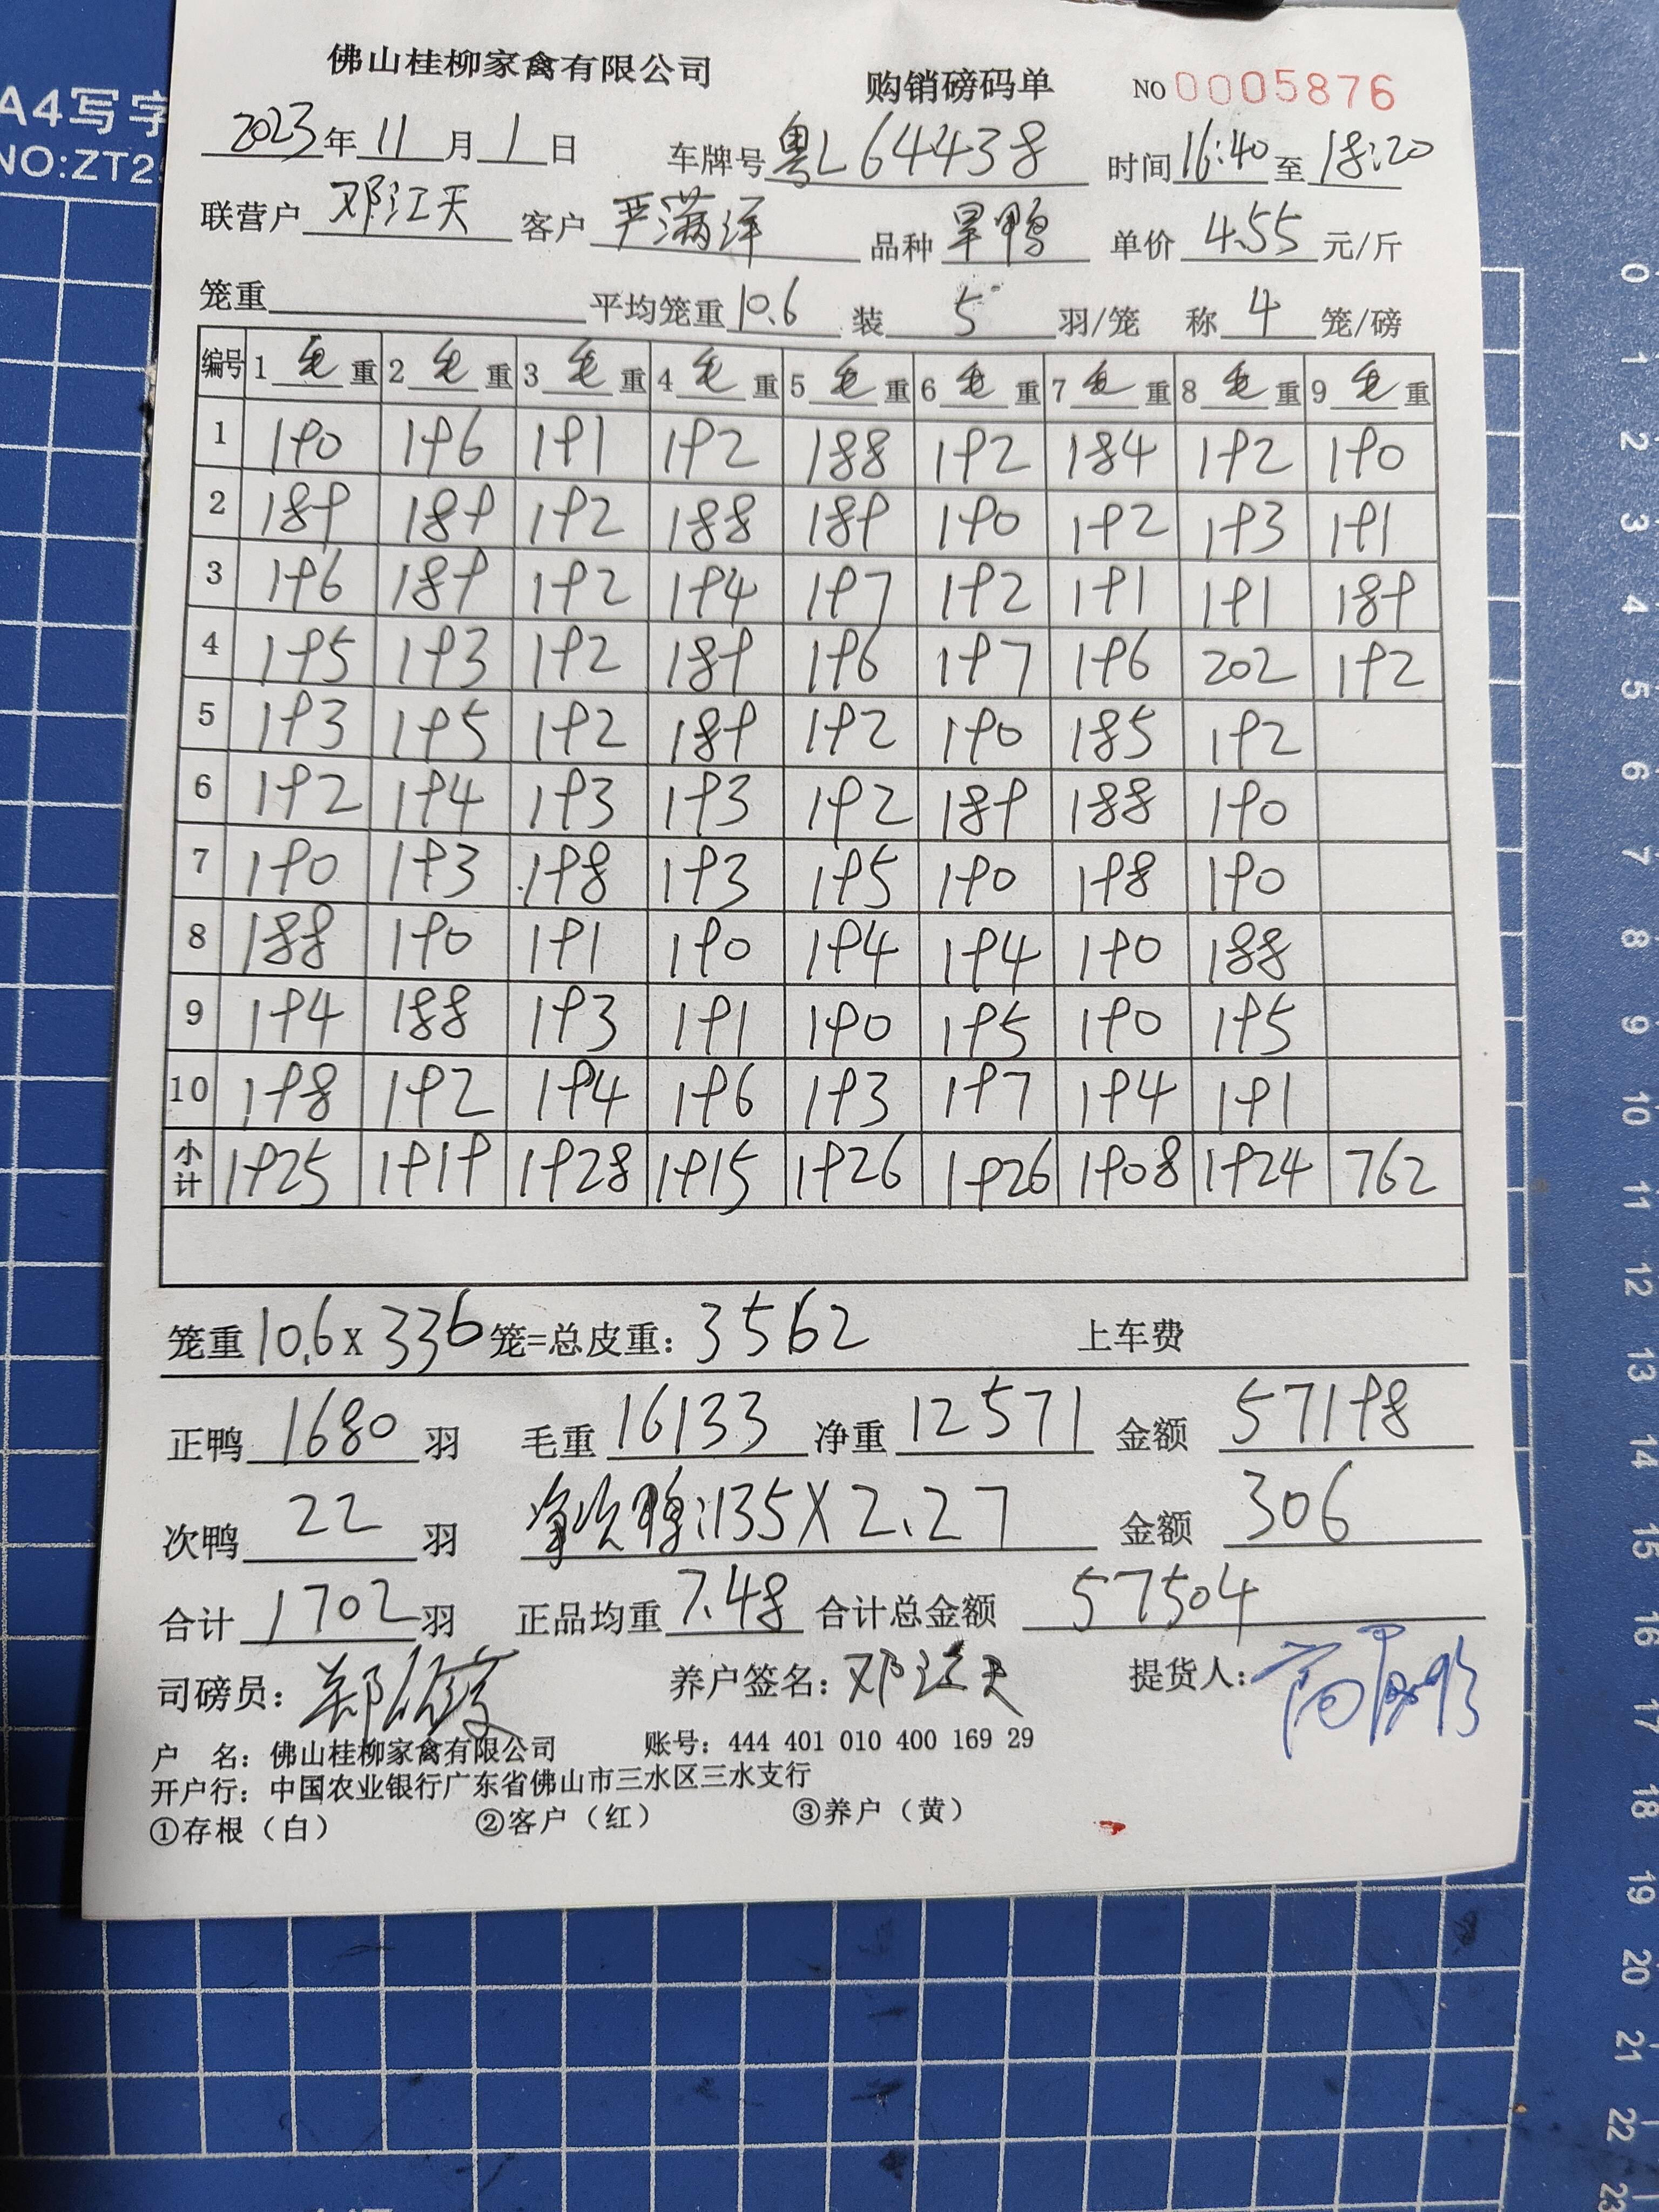 A4写字
NO:ZT2
佛山桂柳家禽有限公司 购销磅码单 NO 0005876
2023年11月1日 车牌号粤L64438 时间16:40至18:20
联营户 邓江天 客户 严满洋 品种 旱鸭 单价 4.55 元/斤
笼重 平均笼重10.6 装 5 羽/笼 称 4 笼/磅
编号 1毛重 2毛重 3毛重 4毛重 5毛重 6毛重 7毛重 8毛重 9毛重
1 190 196 191 192 188 192 184 192 190
2 189 189 192 188 189 190 192 193 191
3 196 189 192 194 197 192 191 191 189
4 195 193 192 189 196 197 196 202 192
5 193 195 192 189 192 190 185 192
6 192 194 193 193 192 189 188 190
7 190 193 198 193 195 190 198 190
8 188 190 191 190 194 194 190 188
9 194 188 193 191 190 195 190 195
10 198 192 194 196 193 197 194 191
小计 1925 1919 1928 1915 1926 1926 1908 1924 762
笼重10.6x336笼=总皮重：3562 上车费
正鸭 1680 羽 毛重 16133 净重 12571 金额 57198
次鸭 22 羽 次鸭:135X2.27 金额 306
合计 1702 羽 正品均重 7.48 合计总金额 57504
司磅员： 养户签名：邓江天 提货人：
户 名：佛山桂柳家禽有限公司 账号：444 401 010 400 169 29
开户行：中国农业银行广东省佛山市三水区三水支行
①存根（白） ②客户（红） ③养户（黄）
0
1
2
3
4
5
6
7
8
9
10
11
12
13
14
15
16
17
18
19
20
21
22
23